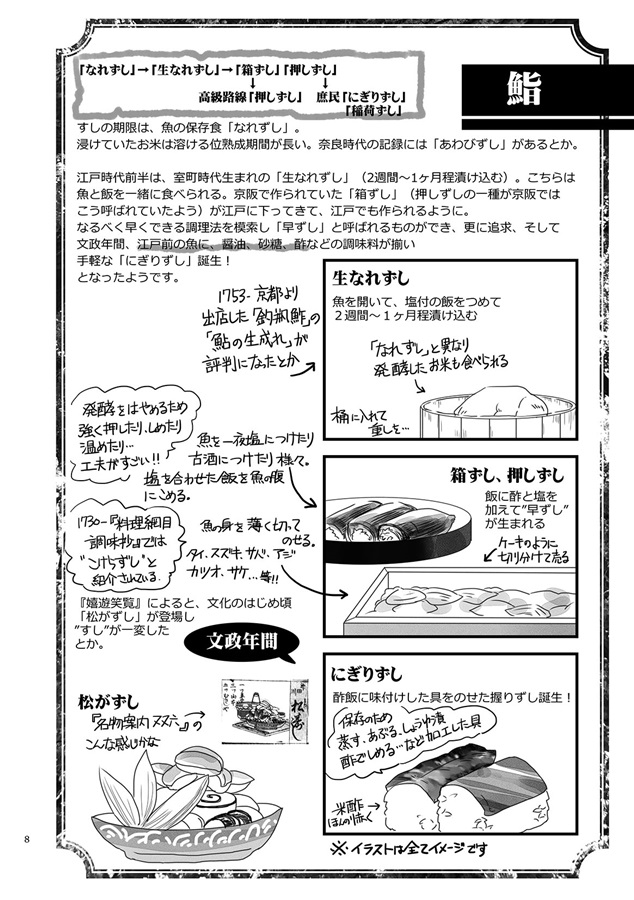 鮨
『なれずし』→『生なれずし』→『箱ずし』『押しずし』
↓ ↓
高級路線『押しずし』 庶民『にぎりずし』
『稲荷ずし』
すしの期限は、魚の保存食「なれずし」。
浸けていたお米は溶ける位熟成期間が長い。奈良時代の記録には「あわびずし」があるとか。
江戸時代前半は、室町時代生まれの「生なれずし」（2週間～1ヶ月程漬け込む）。こちらは
魚と飯を一緒に食べられる。京阪で作られていた「箱ずし」（押しずしの一種が京阪では
こう呼ばれていたよう）が江戸に下ってきて、江戸でも作られるように。
なるべく早くできる調理法を模索し「早ずし」と呼ばれるものができ、更に追求、そして
文政年間、江戸前の魚に、醤油、砂糖、酢などの調味料が揃い
手軽な「にぎりずし」誕生！
となったようです。
1753-京都より
出店した「釣瓶鮓」の
「鮎の生成れ」が
評判になったとか
生なれずし
魚を開いて、塩付の飯をつめて
２週間～１ヶ月程漬け込む
「なれずし」と異なり
発酵したお米も食べられる
桶に入れて
重しを…
発酵をはやめるため
強く押したり、しめたり
温めたり…
工夫がすごい!!
魚を一夜塩につけたり
古酒につけたり様々。
塩を合わせた飯を魚の腹
にこめる。
箱ずし、押しずし
飯に酢と塩を
加えて"早ずし"
が生まれる
ケーキのように
切り分けて売る
1730-『料理網目
調味抄』では
"こけらずし"と
紹介されている。
魚の身を薄く切って
のせる。
タイ、スズキ、サバ、アジ
カツオ、サケ…等!!
『嬉遊笑覧』によると、文化のはじめ頃
「松がずし」が登場し
"すし"が一変した
とか。
文政年間
松がずし
『名物案内双六』の
こんな感じかな
松がずし
にぎりずし
酢飯に味付けした具をのせた握りずし誕生！
保存のため
蒸す、あぶる、しょうゆ漬
酢でしめる…など加工した具
米酢→
ほんのり赤く
※イラストは全てイメージです
8